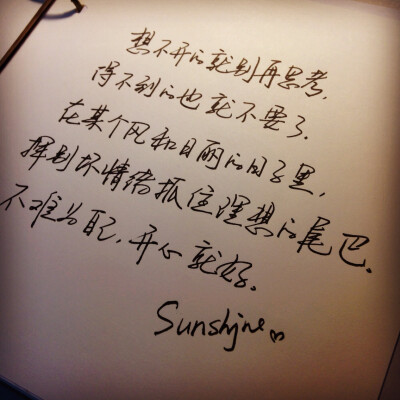 想不开的就别再思考，
得不到的也就不要了.
在某个风和日丽的日子里，
挥别坏情绪抓住理想的尾巴.
不难为自己，开心就好.
Sunshine♡